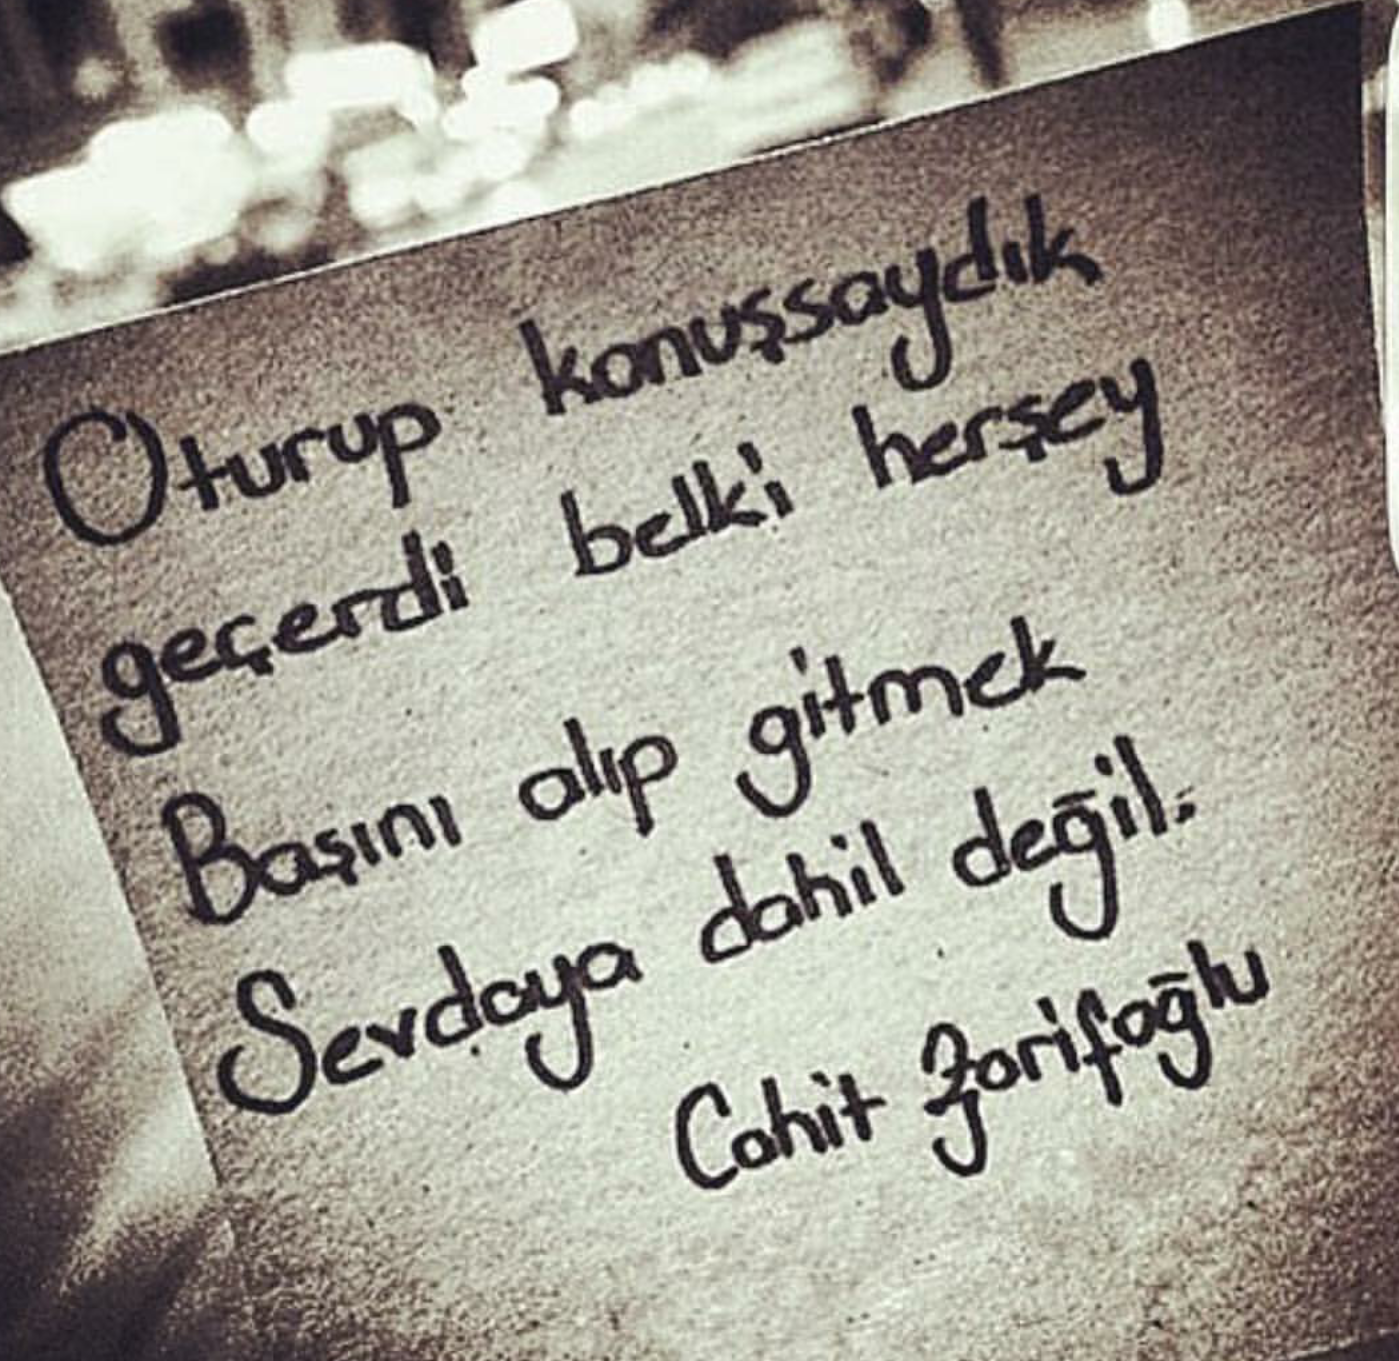 Oturup konuşsaydık
geçerdi belki herşey
Başını alıp gitmek
Sevdaya dahil değil.
Cahit Zarifoğlu